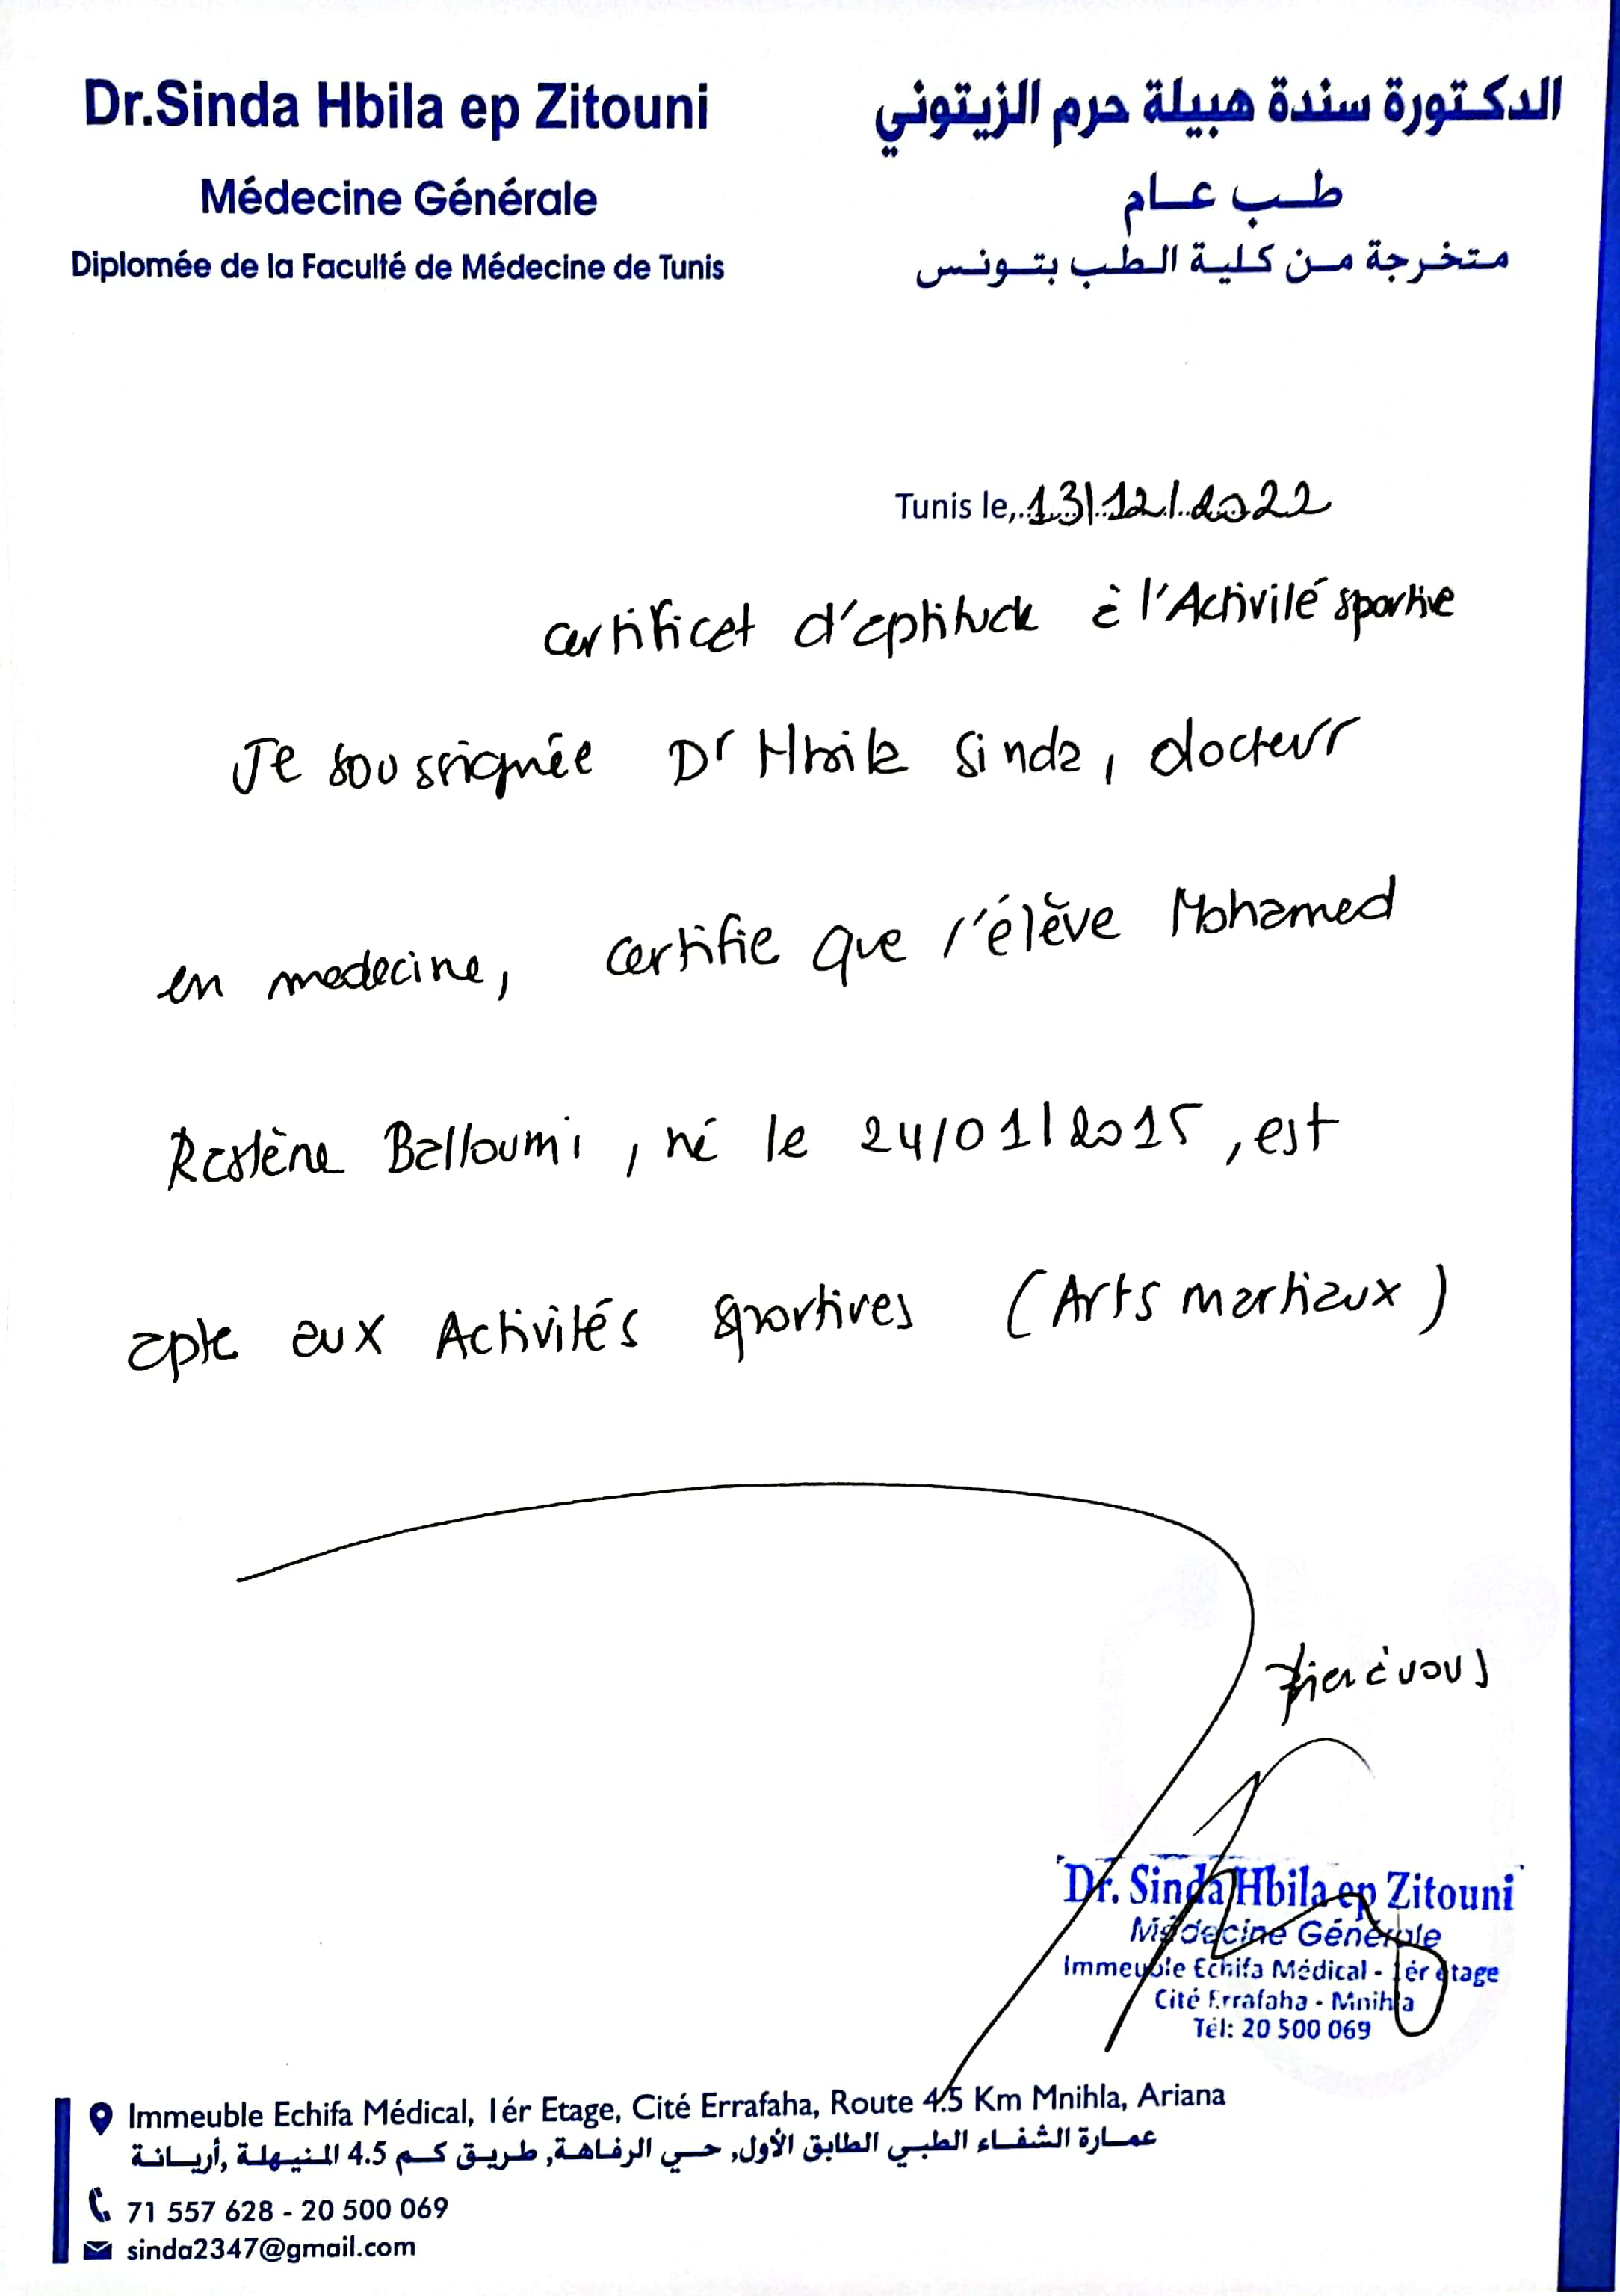 Dr.Sinda Hbila ep Zitouni
Médecine Générale
Diplomée de la Faculté de Médecine de Tunis
الدكتورة سندة هبيلة حرم الزيتوني
طب عام
متخرجة من كلية الطب بتونس
Tunis le, 13/12/2022
certificat d'aptitude à l'Activité sportive
Je soussignée Dr Hbila Sinda, docteur
en medecine, certifie que l'élève Mohamed
Rastène Balloumi, né le 24/01/2015, est
apte aux Activités sportives (Arts martiaux)
bien à vous
Dr. Sinda Hbila ep Zitouni
Médecine Générale
Immeuble Echifa Médical - 1ér étage
Cité Errafaha - Mnihla
Tél: 20 500 069
Immeuble Echifa Médical, 1ér Etage, Cité Errafaha, Route 4.5 Km Mnihla, Ariana
عمارة الشفاء الطبي الطابق الأول, حي الرفاهة, طريق كم 4.5 المنيهلة ,أريانة
71 557 628 - 20 500 069
sinda2347@gmail.com